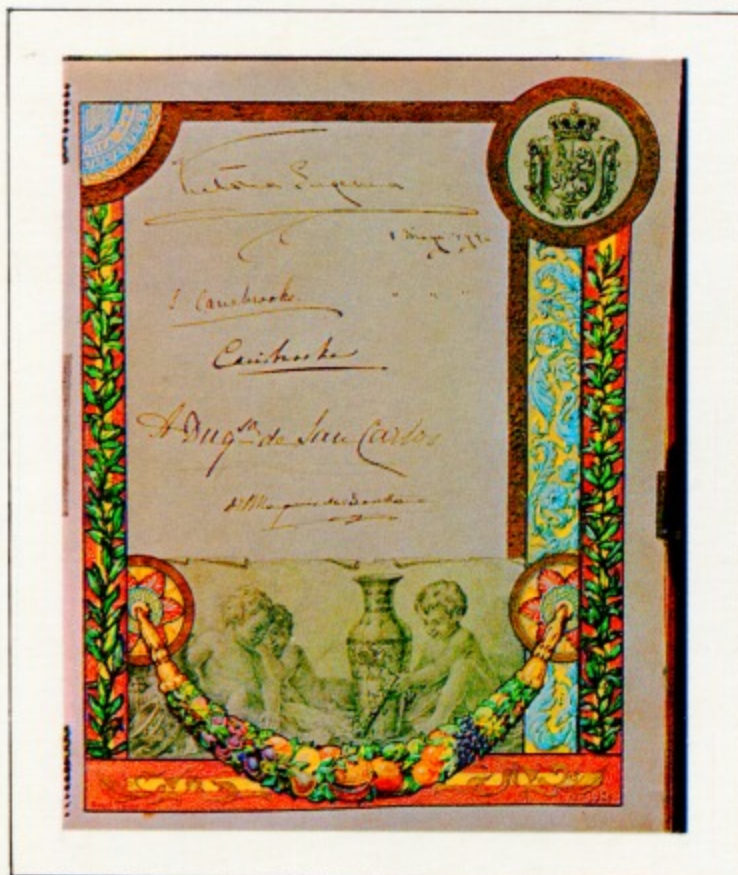 Victoria Eugenia
1 Mayo
I. Carisbrooke " " "
Carisbrooke
A Duqsa de San Carlos
El Marques de